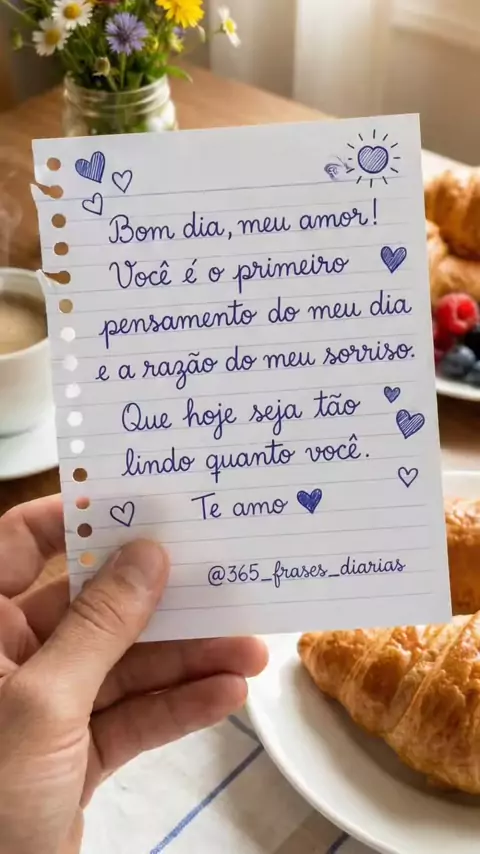 Bom dia, meu amor!
Você é o primeiro
pensamento do meu dia
e a razão do meu sorriso.
Que hoje seja tão
lindo quanto você.
Te amo
@365_frases_diarias